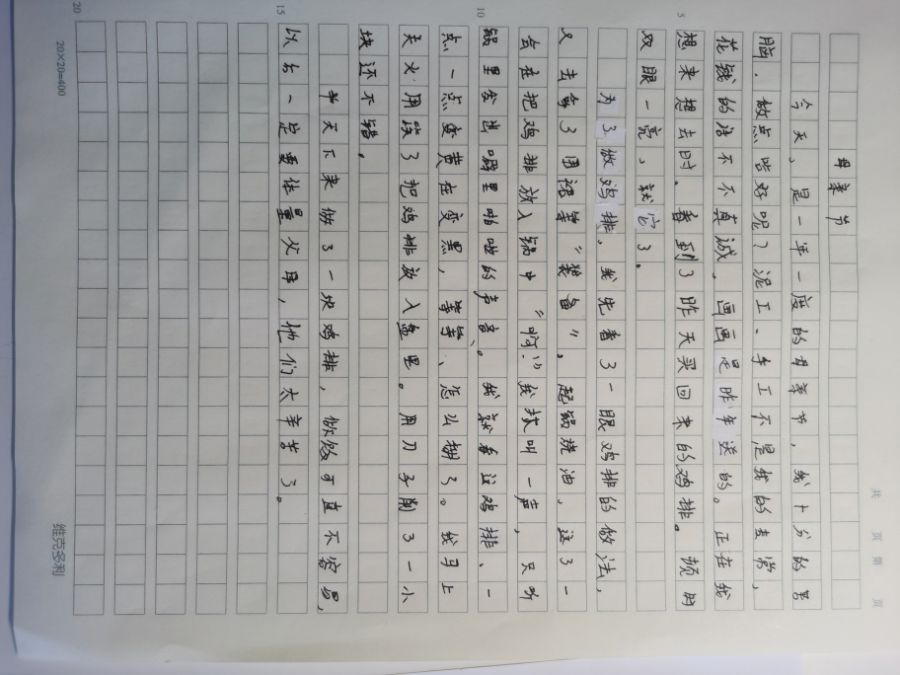 共 页 第 页
母亲节
今天，是一年一度的母亲节，我十分的苦
脑．做点啥好呢？泥工、手工不是我的去常，
花钱的话不不真诚．画画是昨年送的。正在我
5
想来想去时．看到了昨天买回来的鸡排。顿时
双眼一亮，就它了．
为了做鸡排．我先看了一眼鸡排的做法，
又去拿了围裙等“装备”，起锅烧油，这了一
会在把鸡排放入锅中“啊！”我大叫一声，只听
10
锅里发出噼里啪啦的声音。我就看这鸡排、一
点一点变黄在变黑，等等、怎么糊了。我马上
关火．用筷了把鸡排放入盘里。用刀子削了一小
块还不错．
半天下来做了一块鸡排，做饭可直不容易，
15
以后一定要体量父母，他们太辛苦了。
20
20×20=400
维克多利